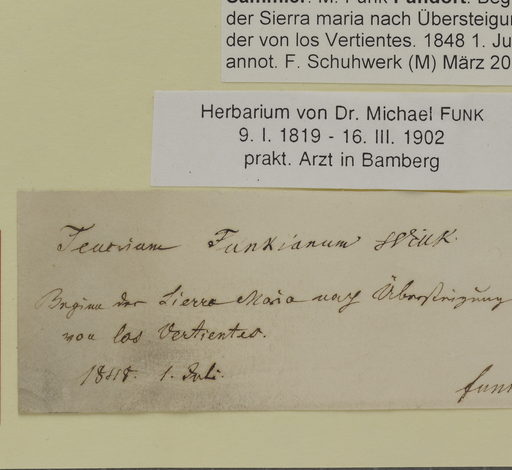 Sammler: M. Funk Fundort: Beg
der Sierra maria nach Übersteigun
der von los Vertientes. 1848 1. Ju
annot. F. Schuhwerk (M) März 20
Herbarium von Dr. Michael FUNK
9. I. 1819 - 16. III. 1902
prakt. Arzt in Bamberg
Teucrium Funkianum Willk.
Beginn der Sierra Maria nach Übersteigung
von los Vertientes.
1848. 1. Juli.
Funk